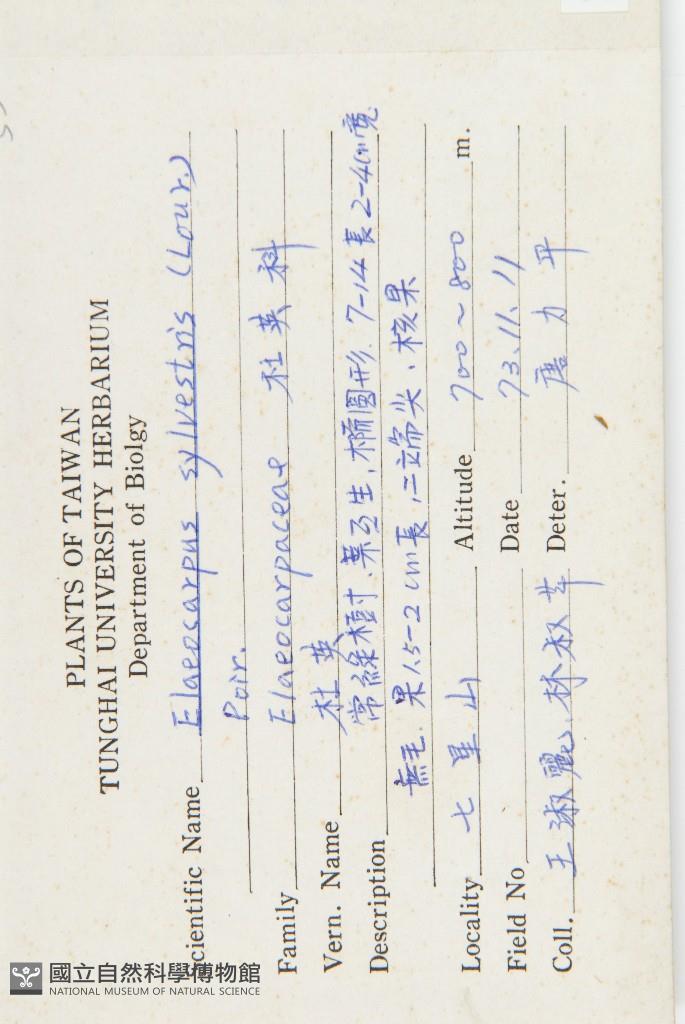 PLANTS OF TAIWAN
TUNGHAI UNIVERSITY HERBARIUM
Department of Biolgy
Scientific Name Elaeocarpus sylvestris (Lour.)
Poir.
Family Elaeocarpaceae 杜英科
Vern. Name 杜英
Description 常綠樹,葉互生,橢圓形,7-14長2-4cm寬
無毛. 果1.5-2cm長,二端尖,核果
Locality 七星山 Altitude 700~800 m.
Field No Date 73.11.4
Coll. 王淑麗、林淑 Deter. 力平
國立自然科學博物館
NATIONAL MUSEUM OF NATURAL SCIENCE